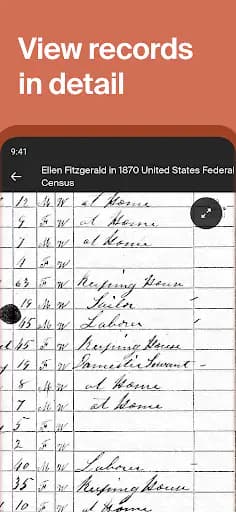 View records
in detail
9:41
Ellen Fitzgerald in 1870 United States Federal
Census
12 M W at Home
9 F W at Home
7 M W at Home
4 F W
63 F W Keeping House
19 M W Sailor
45 M W Labour
45 F W Keeping House
19 F W Domestic Servant
8 M W at Home
7 M W at Home
5 F W
2 F W
40 M W Labour
35 F W Keeping House
10 F W at Home